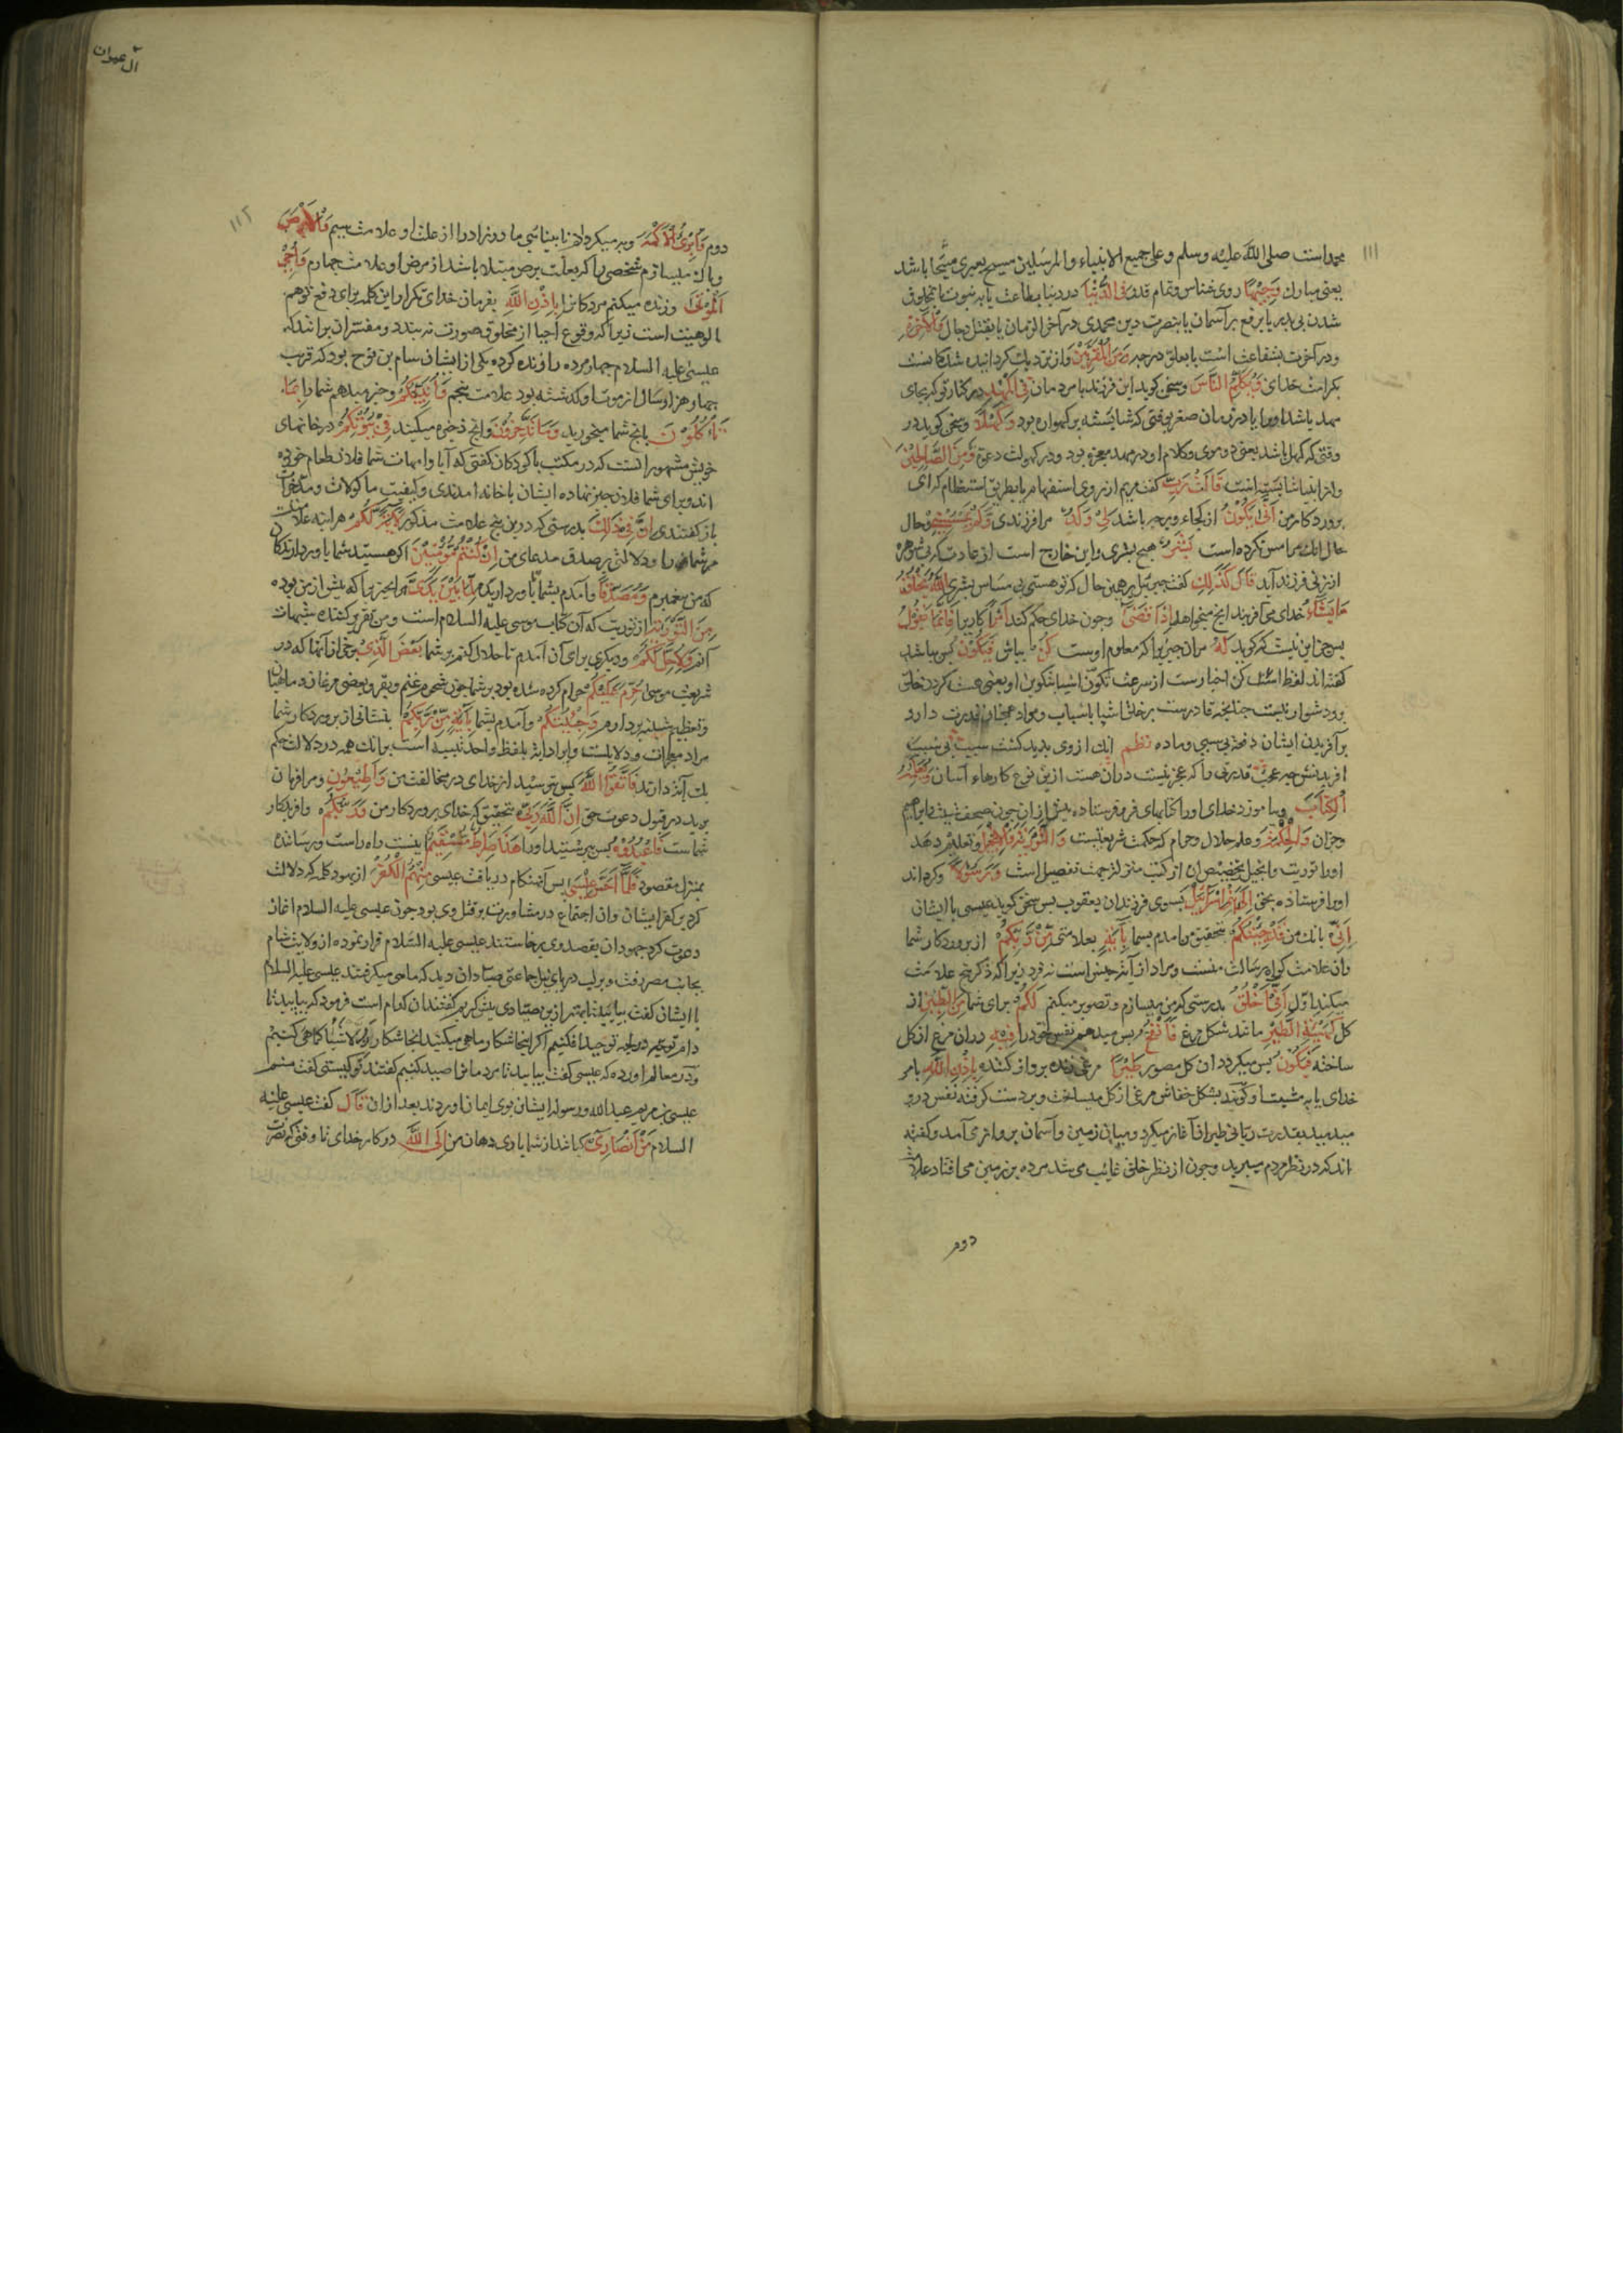 ۱۱۱
محمد است صلی الله علیه وسلم وعلی جمیع الانبیاء والمرسلین مسیح بعبری مشیحا باشد
یعنی مبارک وَجِیْهًا روی شناس وتمام قدر فِی الدُّنْیَا در دنیا بطاعت یا به نبوت یا بمخلوق
شدن بی پدر یا برفع بر آسمان یا بنصرت دین محمدی در آخر الزمان یا بقتل دجال وَالْآخِرَةِ
ودر آخرت بشفاعت است یا بعلو درجه وَمِنَ الْمُقَرَّبِیْنَ واز نزدیک کردانیده شدکانست
بکرامت خدای وَیُکَلِّمُ النَّاسَ وسخن کوید این فرزند با مردمان فِی الْمَهْدِ در کنار تو که بجای
مهد باشد او را یا در زمان صغر یعنی که شایسته بر کهواره بود وَکَهْلًا وسخن کوید در
وقتی که کهل باشد یعنی دوموی وکلام او در مهد معجزه بود ودر کهولت دعوة وَمِنَ الصَّالِحِیْنَ
واز انبیا شایسته است قَالَتْ رَبِّ کفت مریم از روی استفهام یا بطریق استعظام که ای
پروردکار من اَنّٰی یَکُوْنُ از کجا وبر چه باشد لِیْ وَلَدٌ مرا فرزندی وَلَمْ یَمْسَسْنِیْ وحال
حال انک مرا مس نکرده است بَشَرٌ هیچ بشری واین خارج است از عادت که بی شوهر
از زنی فرزند آید قَالَ کَذٰلِكِ کفت جبرئیل بر همین حال که تو هستی بی مساس بشری اللّٰهُ یَخْلُقُ
مَا یَشَاءُ خدای می آفریند انچ میخواهد اِذَا قَضٰی وچون خدای حکم کند اَمْرًا کاریرا فَاِنَّمَا یَقُوْلُ
پس جز این نیست که کوید لَهُ مر ان چیز را که معلوم اوست کُنْ بباش فَیَکُوْنُ پس بباشد
کفته اند لفظ کن اخبارست از سرعت تکون اشیا بتکوین او یعنی هست کردن خلق
برو دشوار نیست چنانچه قادرست بر خلق اشیا باسباب ومواد همچنان قدرت دارد
بر آفریدن ایشان دفعة بی سببی وماده نظم انک از وی پدید کشت سبب بی سبب
افریدنش چه عجب قدرتی را که عجز نیست دران هست ازین نوع کارهاء آسان وَیُعَلِّمُهُ
الْکِتَابَ وبیاموزد خدای او را کتابهای فرو فرستاده پیش از ان چون صحف شیث وابراهیم
وجزان وَالْحِکْمَةَ وعلم حلال وحرام که حکمت شریعتست وَالتَّوْرٰیةَ وَالْاِنْجِیْلَ وتعلیم دهد
او را توریت وانجیل وتخصیص ان از کتب منزله از جهت تفضیل است وَرَسُوْلًا وکرداند
او را فرستاده بحق اِلٰی بَنِیْ اِسْرَآئِیْلَ بسوی فرزندان یعقوب پس سخن کوید عیسی با ایشان
اَنِّیْ بانک من قَدْ جِئْتُکُمْ بتحقیق من امدم بشما بِاٰیَةٍ بعلامتی مِنْ رَبِّکُمْ از پروردکار شما
وان علامت کواه رسالت منست ومراد از آیة جنس است نه فرد زیرا که ذکر پنج علامت
میکند اول اَنِّیْ اَخْلُقُ بدرستی که من میسازم وتصویر میکنم لَکُمْ برای شما مِنَ الطِّیْنِ از
کل کَهَیْئَةِ الطَّیْرِ مانند شکل مرغ فَاَنْفُخُ پس میدهم نفس خود را فِیْهِ دران مرغ از کل
ساخته فَیَکُوْنُ پس میکردد ان کل مصور طَیْرًا مرغی زنده پرواز کننده بِاِذْنِ اللّٰهِ بامر
خدای یا به مشیت او کویند بشکل خفاش مرغی از کل میساخت وبر دست کرفته نفس درو
میدمید بقدرت ربانی طیران آغاز میکرد ومیان زمین وآسمان پرواز می آمد وکفته
اند که در نظر مردم میپرید وچون از نظر خلق غائب می شد مرده بر زمین می افتاد علامت
دوم
آل عمران
۱۱۲
دوم وَاُبْرِئُ الْاَکْمَهَ وبه میکردانم نابینای مادرزاد را از علت او علامت سیم وَالْاَبْرَصَ
وپاک میسازم شخصی را که بعلت برص مبتلا باشد از مرض او علامت چهارم وَاُحْیِ
الْمَوْتٰی وزنده میکنم مردکانرا بِاِذْنِ اللّٰهِ بفرمان خدای تکرار این کلمه برای دفع توهم
الوهیت است زیرا که وقوع احیا از مخلوق صورت نه بندد ومفسران برانند که
عیسی علیه السلام چهار مرده را زنده کرده یکی از ایشان سام بن نوح بود که قریب
چهار هزار سال از موت او کذشته بود علامت پنجم وَاُنَبِّئُکُمْ وخبر میدهم شما را بِمَا
تَاْکُلُوْنَ بانچ شما میخورید وَمَا تَدَّخِرُوْنَ وانچ ذخیره میکنید فِیْ بُیُوْتِکُمْ در خانهای
خویش مشهور انست که در مکتب با کودکان کفتی که آبا وامهات شما فلان طعام خورده
اند وبرای شما فلان چیز نهاده ایشان با خانه امدندی وکیفیت ماکولات ومدخرات
باز کفتندی اِنَّ فِیْ ذٰلِكَ بدرستی که درین پنج علامت مذکور لَاٰیَةً لَکُمْ هر آینه علامتیست
مر شما را ودلالتی بر صدق مدعای من اِنْ کُنْتُمْ مُؤْمِنِیْنَ اکر هستید شما باور دارندکان
که من پیغمبرم وَمُصَدِّقًا وآمدم بشما باور دارنده لِمَا بَیْنَ یَدَیَّ مر انچیز را که پیش از من بوده
مِنَ التَّوْرٰیةِ از توریت که آن کتاب موسی علیه السلام است ومن تقریر کننده شبهات
آنم وَلِاُحِلَّ لَکُمْ ودیکری برای آن آمدم تا حلال کنم بر شما بَعْضَ الَّذِیْ برخی از آنها که در
شریعت موسی حُرِّمَ عَلَیْکُمْ حرام کرده شده بود بر شما چون شحوم غنم وبقر وبعضی مرغان وماهیان
وتعظیم شنبه بردارم وَجِئْتُکُمْ وآمدم بشما بِاٰیَةٍ مِنْ رَبِّکُمْ بنشانی از پروردکار شما
مراد معجزات ودلایلست وایراد آیة بلفظ واحد تنبیه است برانک همه در دلالت حکم
یک آیت دارند فَاتَّقُوا اللّٰهَ پس بترسید از خدای در مخالفت من وَاَطِیْعُوْنِ ومرا فرمان
برید در قبول دعوت حق اِنَّ اللّٰهَ رَبِّیْ بتحقیق که خدای پروردکار من وَرَبُّکُمْ وافریدکار
شماست فَاعْبُدُوْهُ پس بپرستید او را هٰذَا صِرَاطٌ مُسْتَقِیْمٌ اینست راه راست ورساننده
بمنزل مقصود فَلَمَّا اَحَسَّ عِیْسٰی پس آنهنکام دریافت عیسی مِنْهُمُ الْکُفْرَ از یهود کلمه که دلالت
کرد بر کفر ایشان وان اجتماع در مشاورت بر قتل وی بود چون عیسی علیه السلام اغاز
دعوت کرد جهودان بقصد وی برخاستند عیسی علیه السلام قرار نموده از ولایت شام
بجانب مصر رفت وبر لب دریای نیل جماعتی صیادان دید که ماهی میکرفتند عیسی علیه السلام
با ایشان کفت بیایید تا بهتر ازین صیادی پیش کریم کفتند ان کدام است فرمود که بیایید تا
ودر معالم اورده که عیسی کفت بیایید تا مردمانرا صید کنیم کفتند تو کیستی کفت منم
عیسی بن مریم عبد الله ورسوله ایشان بوی ایمان اوردند بعد ازان قَالَ کفت عیسی علیه
السلام مَنْ اَنْصَارِیْ کیانند از شما یاری دهان من اِلَی اللّٰهِ در کار خدای تا وقتی که نصرت